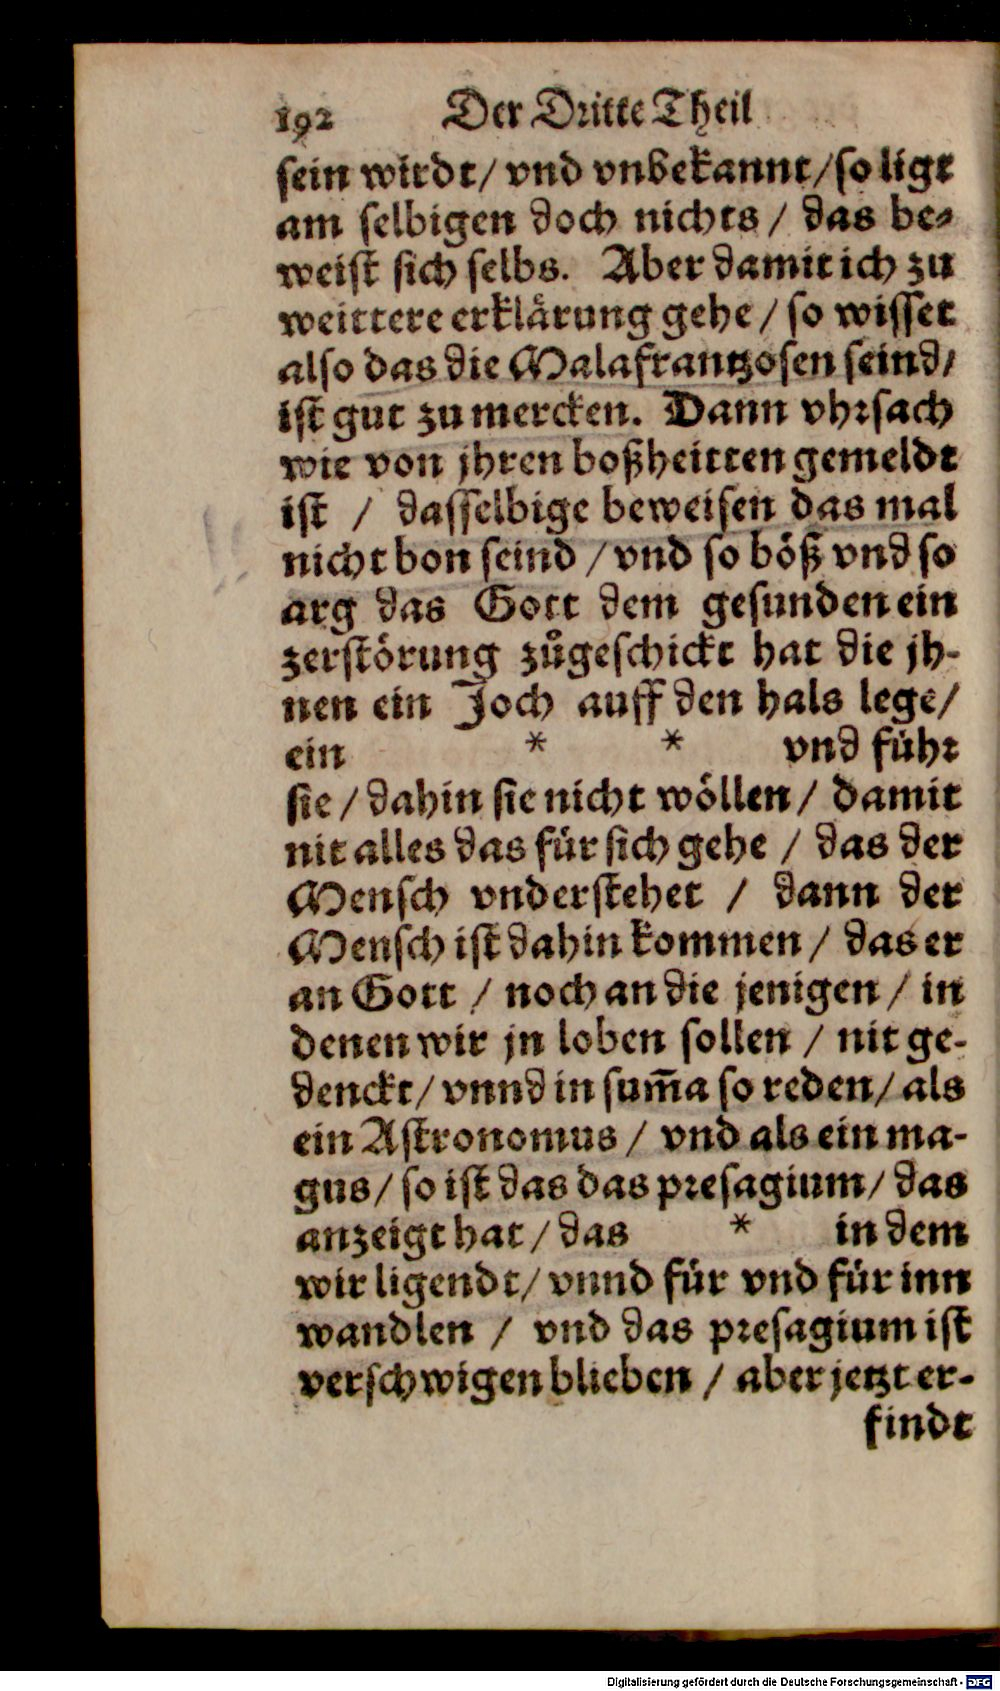 192 Der Dritte Theil
sein wirdt / vnd vnbekannt / so ligt
am selbigen doch nichts / das be-
weist sich selbs. Aber damit ich zu
weittere erklärung gehe / so wisset
also das die Malafrantzosen seind /
ist gut zu mercken. Dann vhrsach
wie von jhren boßheitten gemeldt
ist / dasselbige beweisen das mal
nicht bon seind / vnd so böß vnd so
arg das Gott dem gesunden ein
zerstörung zůgeschickt hat die jh-
nen ein Joch auff den hals lege /
ein * * vnd führ
sie / dahin sie nicht wöllen / damit
nit alles das für sich gehe / das der
Mensch vnderstehet / dann der
Mensch ist dahin kommen / das er
an Gott / noch an die jenigen / in
denen wir jn loben sollen / nit ge-
denckt / vnnd in sum̃a so reden / als
ein Astronomus / vnd als ein ma-
gus / so ist das das presagium / das
anzeigt hat / das * in dem
wir ligendt / vnnd für vnd für inn
wandlen / vnd das presagium ist
verschwigen blieben / aber jetzt er-
findt
Digitalisierung gefördert durch die Deutsche Forschungsgemeinschaft - DFG